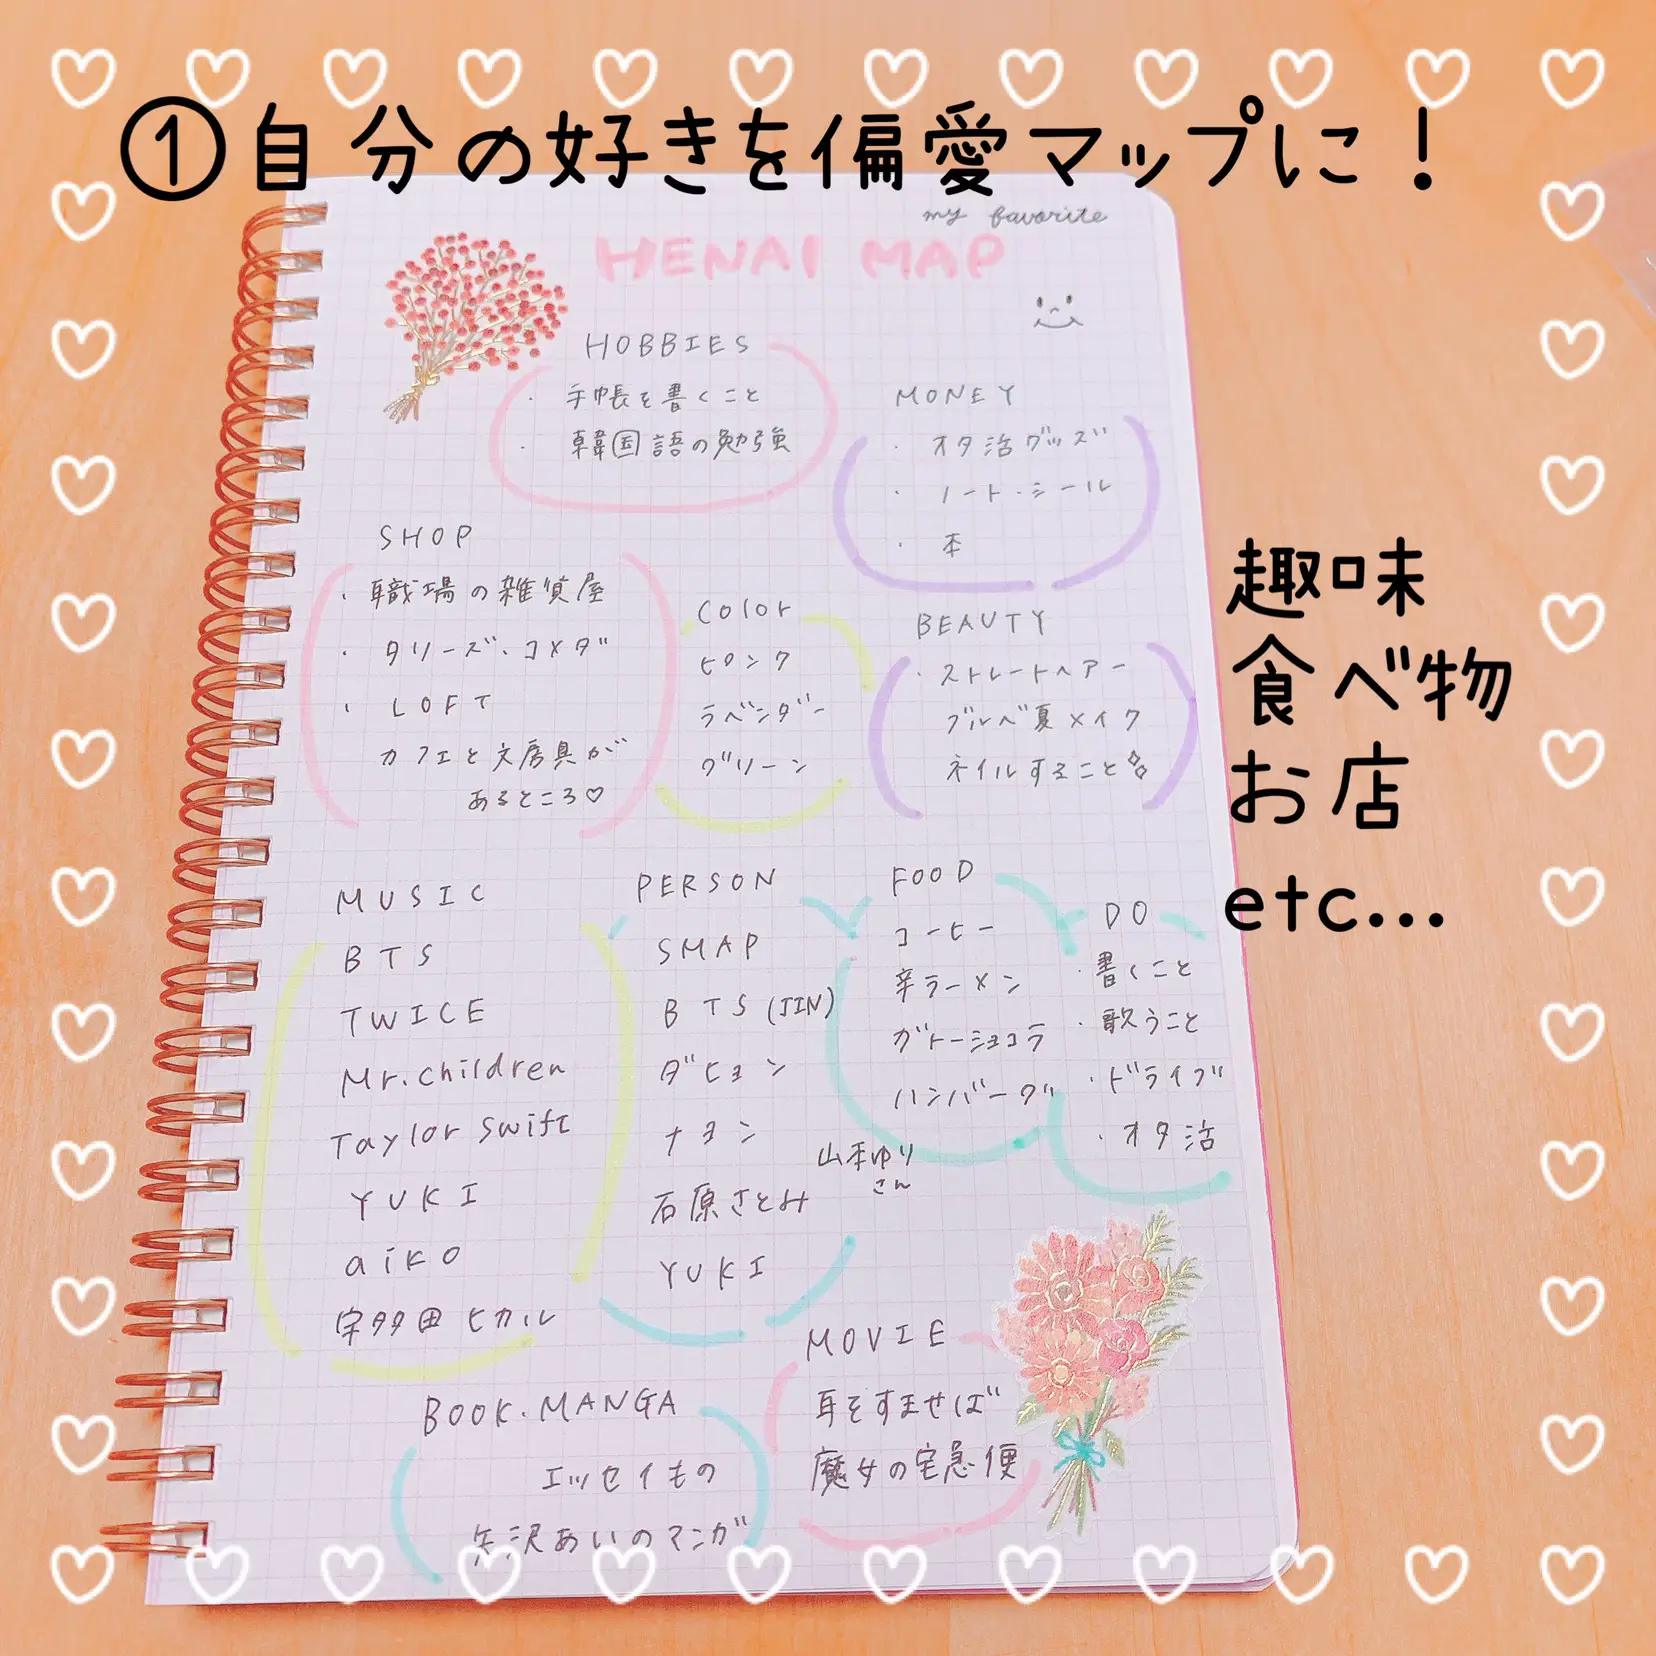 ①自分の好きを偏愛マップに！
my favorite
HENAI MAP
HOBBIES
・手帳を書くこと
・韓国語の勉強
MONEY
・オタ活グッズ
・ノート・シール
・本
SHOP
・職場の雑貨屋
・タリーズ・コメダ
・LOFT
カフェと文房具が
あるところ♡
Color
ピンク
ラベンダー
グリーン
BEAUTY
・ストレートヘアー
ブルベ夏メイク
ネイルすること
趣味
食べ物
お店
etc...
MUSIC
BTS
TWICE
Mr.children
Taylor swift
YUKI
aiko
宇多田ヒカル
PERSON
SMAP
BTS(JIN)
ダヒョン
ナヨン
石原さとみ
YUKI
山本ゆり
さん
FOOD
コーヒー
辛ラーメン
ガトーショコラ
ハンバーグ
DO
・書くこと
・歌うこと
・ドライブ
・オタ活
BOOK.MANGA
エッセイもの
矢沢あいのマンガ
MOVIE
耳をすませば
魔女の宅急便